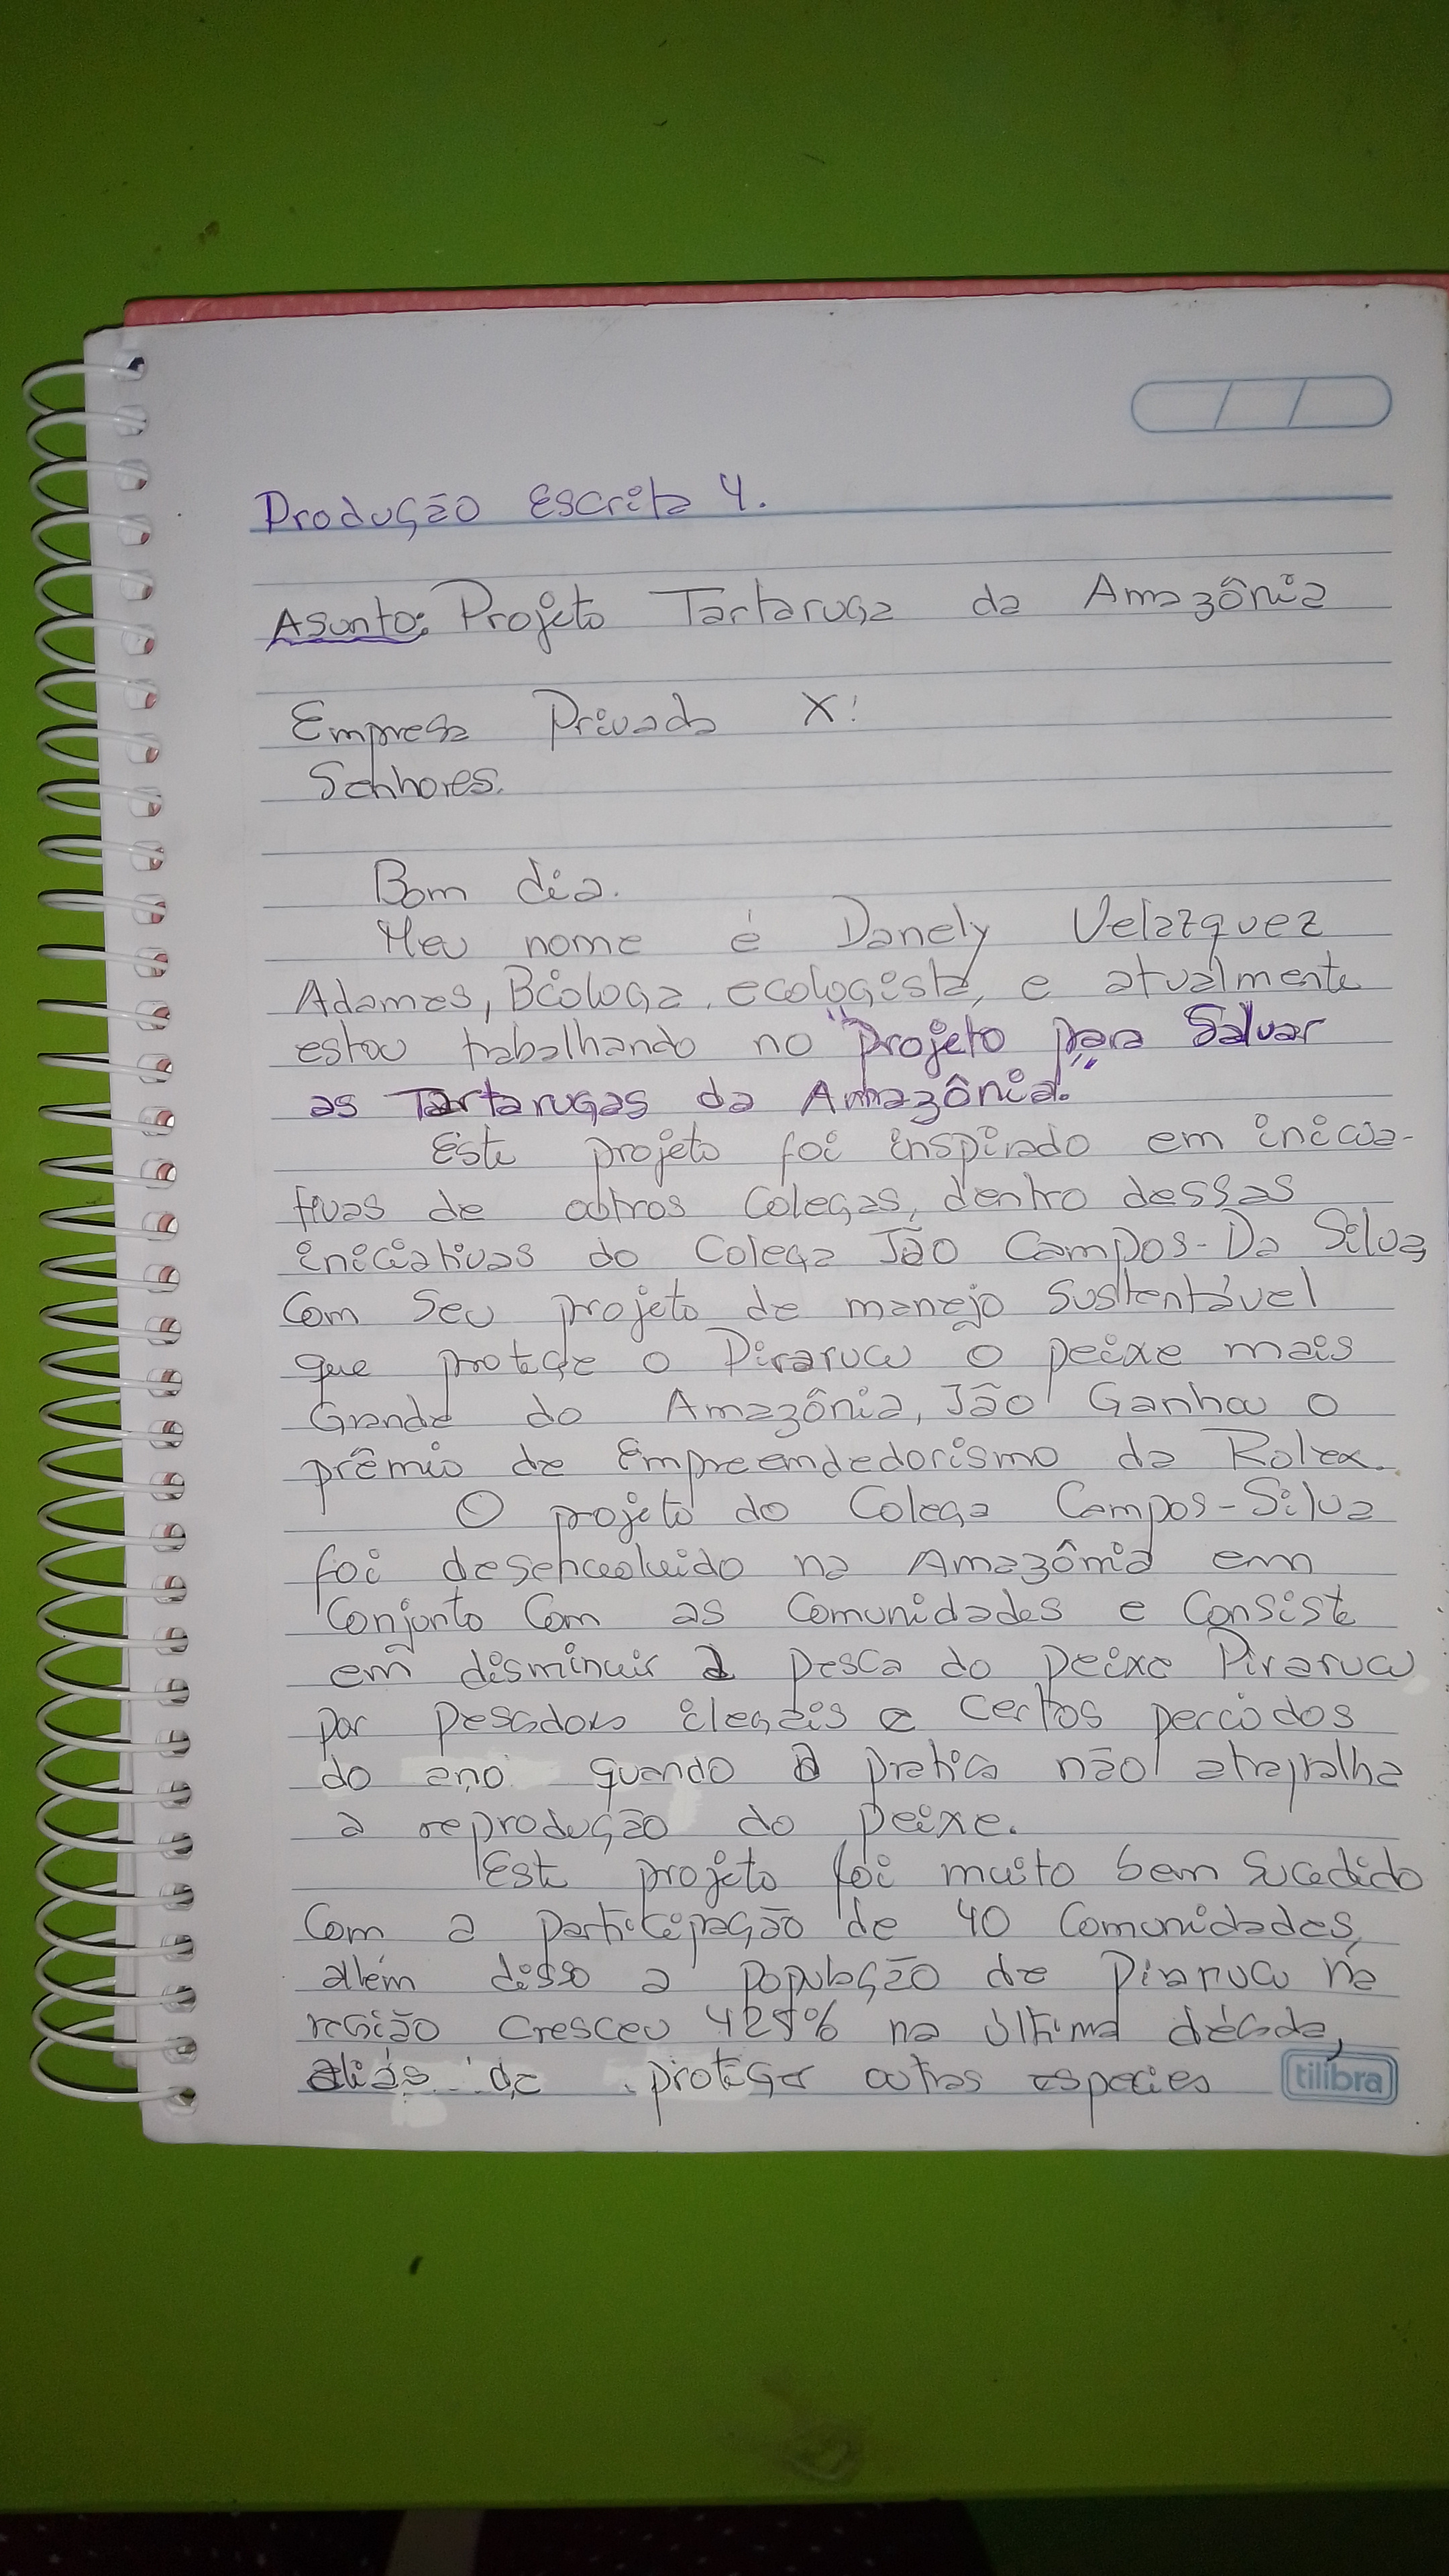 Produção Escrita 4.
Asunto: Projeto Tartaruga da Amazônia
Empresa Privada X:
Senhores.
Bom dia.
Meu nome é Danely Velazquez
Adames, Bióloga, ecologista, e atualmente
estou trabalhando no "projeto para Salvar
as Tartarugas da Amazônia."
Este projeto foi inspirado em inicia-
tivas de outros Colegas, dentro dessas
iniciativas do Colega Jão Campos-Da Silva,
Com seu projeto de manejo sustentável
que protege o Pirarucu o peixe mais
Grande do Amazônia, Jão Ganhou o
prêmio de Empreendedorismo da Rolex.
O projeto do Colega Campos-Silva
foi desenvolvido na Amazônia em
Conjunto Com as Comunidades e Consiste
em disminuir a pesca do peixe Pirarucu,
por pescadores ilegais e certos períodos
do ano quando a pratica não atrapalha
a reprodução do peixe.
Este projeto foi muito bem sucedido
Com a participação de 40 Comunidades,
além disso a população de Pirarucu na
região cresceu 425% na última década,
aliás de proteger outras especies
tilibra